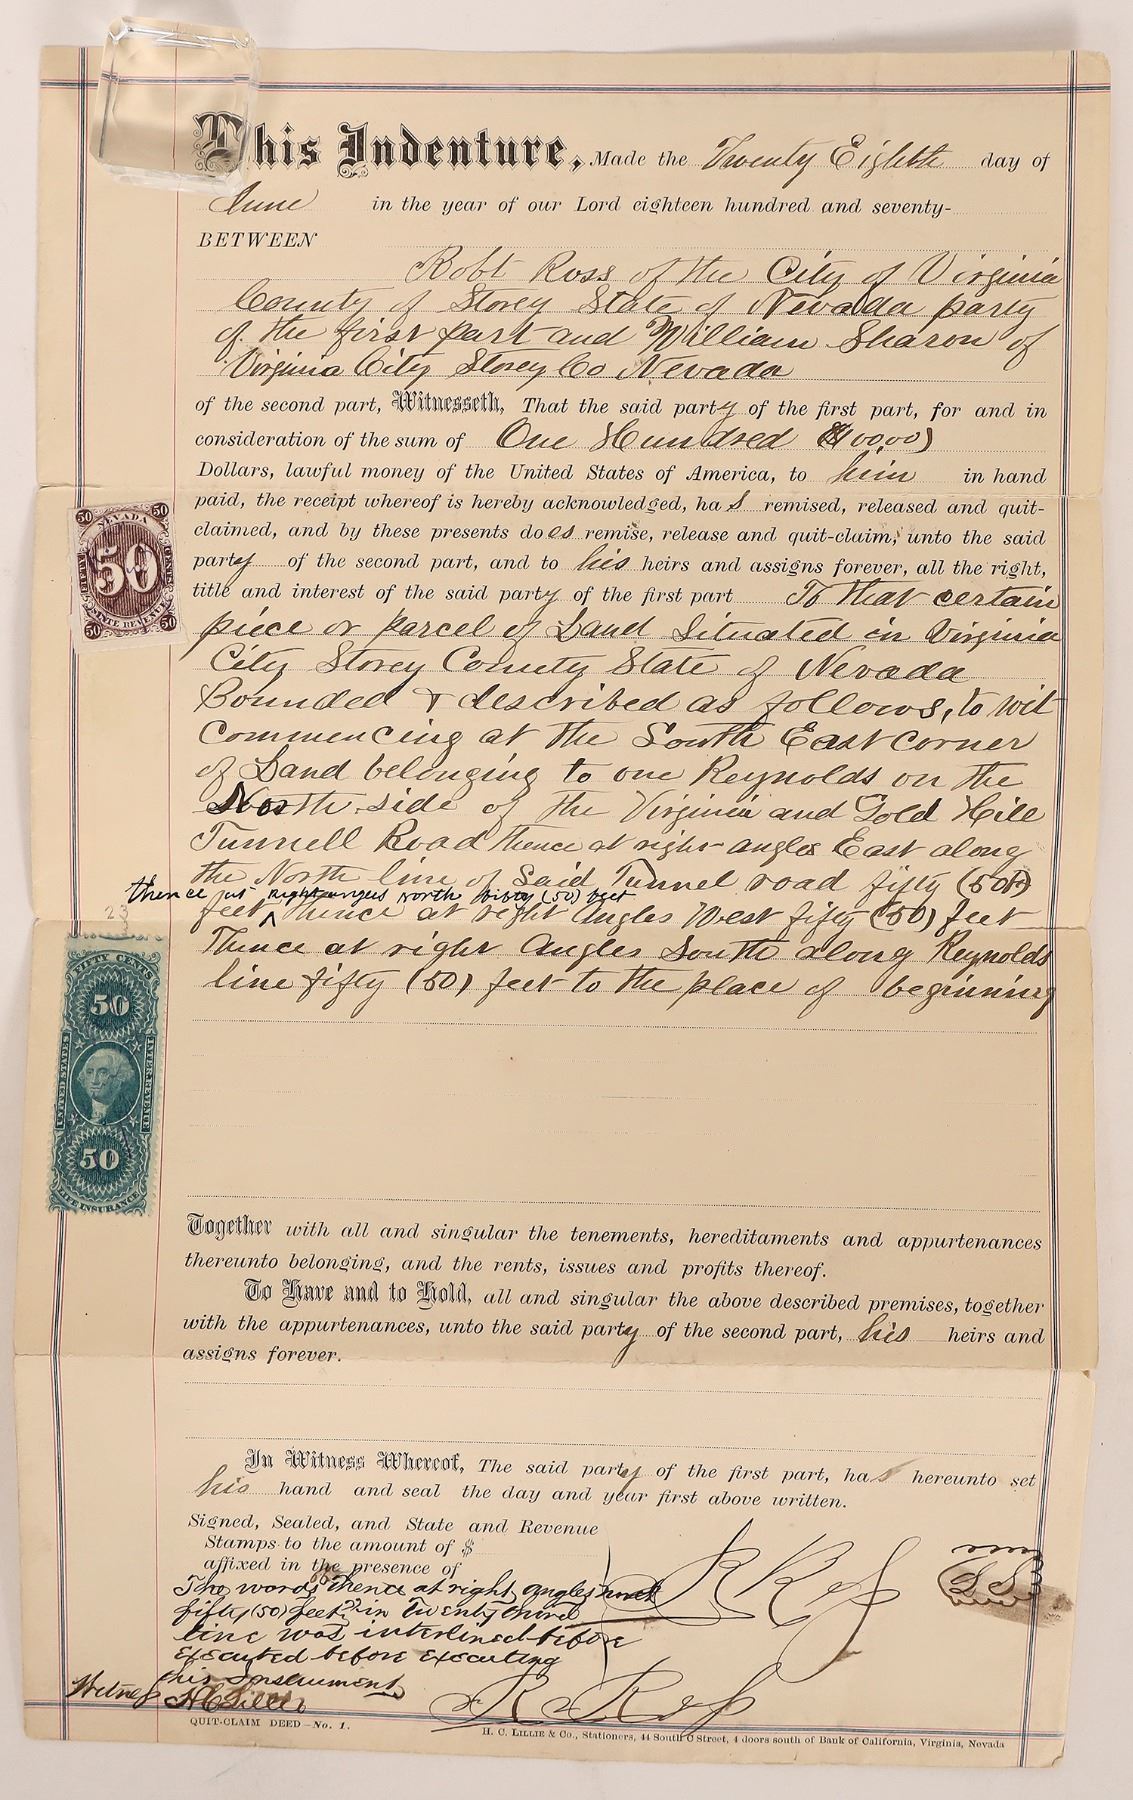 This Indenture, Made the Twenty Eighth day of
June in the year of our Lord eighteen hundred and seventy-
BETWEEN
Robt Ross of the City of Virginia
County of Storey State of Nevada party
of the first part and William Sharon of
Virginia City Storey Co Nevada
of the second part, Witnesseth, That the said party of the first part, for and in
consideration of the sum of One Hundred ($100.00)
Dollars, lawful money of the United States of America, to him in hand
paid, the receipt whereof is hereby acknowledged, has remised, released and quit-
claimed, and by these presents does remise, release and quit-claim, unto the said
party of the second part, and to his heirs and assigns forever, all the right,
title and interest of the said party of the first part To that certain
piece or parcel of Land Situated in Virginia
City Storey County State of Nevada
Bounded & described as follows, to wit
Commencing at the South East corner
of Land belonging to one Reynolds on the
North side of the Virginia and Gold Hill
Tunnell Road thence at right angles East along
the North line of Said Tunnel road fifty (50ft)
thence at right angles north fifty (50) feet
feet thence at right Angles West fifty (50) feet
Thence at right Angles South along Reynolds
line fifty (50) feet to the place of beginning
50 NEVADA 50
50
50 50
23
FIFTY CENTS
50
UNITED STATES
INTER. REVENUE
50
LIFE INSURANCE
Together with all and singular the tenements, hereditaments and appurtenances
thereunto belonging, and the rents, issues and profits thereof.
To Have and to Hold, all and singular the above described premises, together
with the appurtenances, unto the said party of the second part, his heirs and
assigns forever.
In Witness Whereof, The said party of the first part, has hereunto set
his hand and seal the day and year first above written.
Signed, Sealed, and State and Revenue
Stamps to the amount of $
affixed in the presence of
The words thence at right angles north
fifty (50) feet in Twenty third
line was interlined before
executed before executing
this Instrument
R Ross
Witness H C Lillie
R Ross
QUIT-CLAIM DEED—No. 1.
H. C. LILLIE & Co., Stationers, 44 South C Street, 4 doors south of Bank of California, Virginia, Nevada